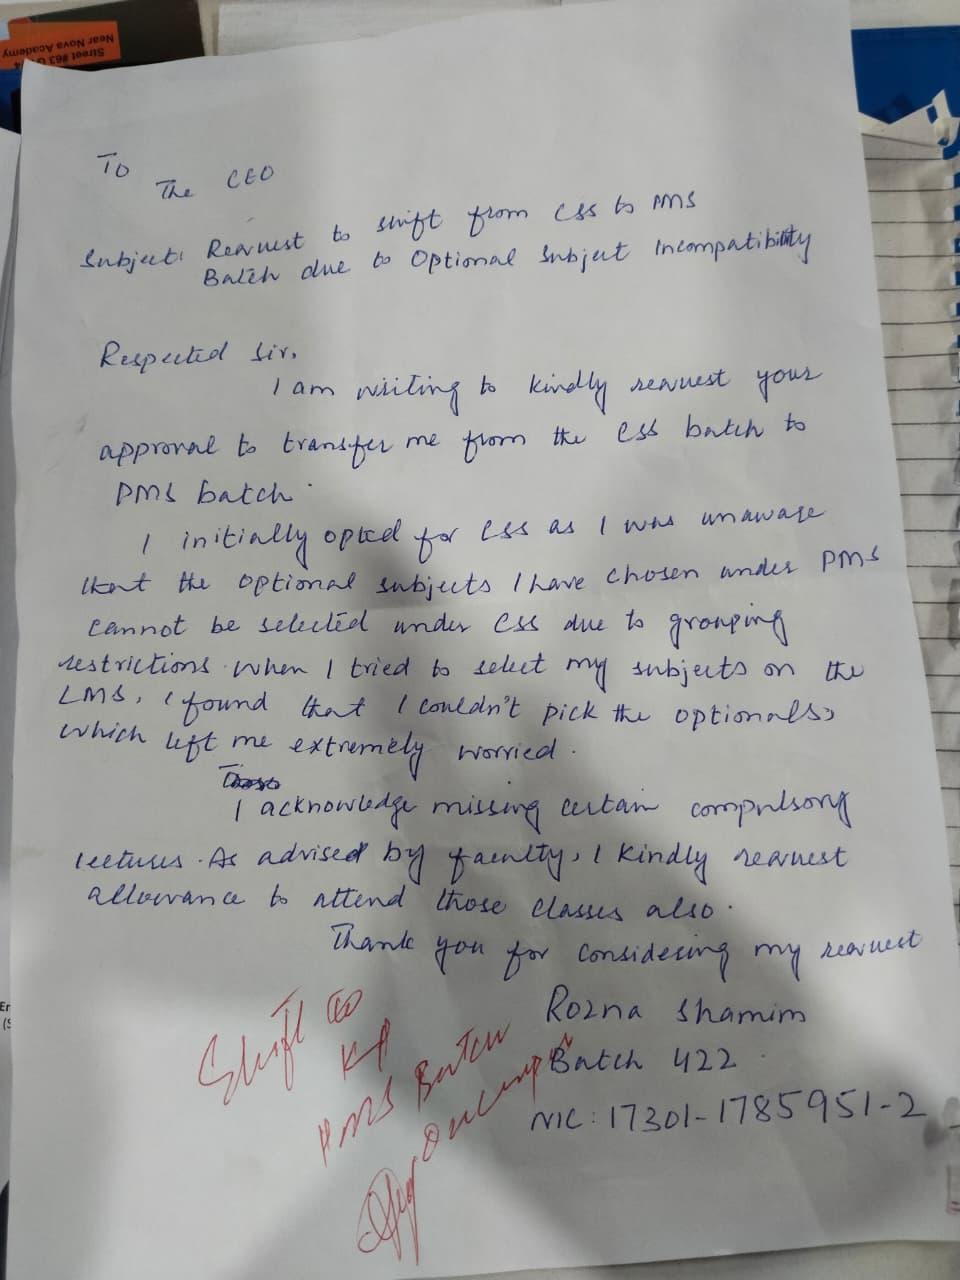 Street #63 G
Near Nova Academy
To
The CEO
Subject: Request to shift from CSS to PMS
Batch due to Optional Subject Incompatibility
Respected Sir,
I am writing to kindly request your
approval to transfer me from the CSS batch to
PMS batch.
I initially opted for CSS as I was unaware
that the optional subjects I have chosen under PMS
cannot be selected under CSS due to grouping
restrictions. When I tried to select my subjects on the
LMS, I found that I couldn't pick the optionals,
which left me extremely worried.
I acknowledge missing certain compulsory
lectures. As advised by faculty, I kindly request
allowance to attend those classes also.
Thank you for considering my request
Rozna Shamim
Batch 422
NIC: 17301-1785951-2
Shift to
KP
PMS Batch